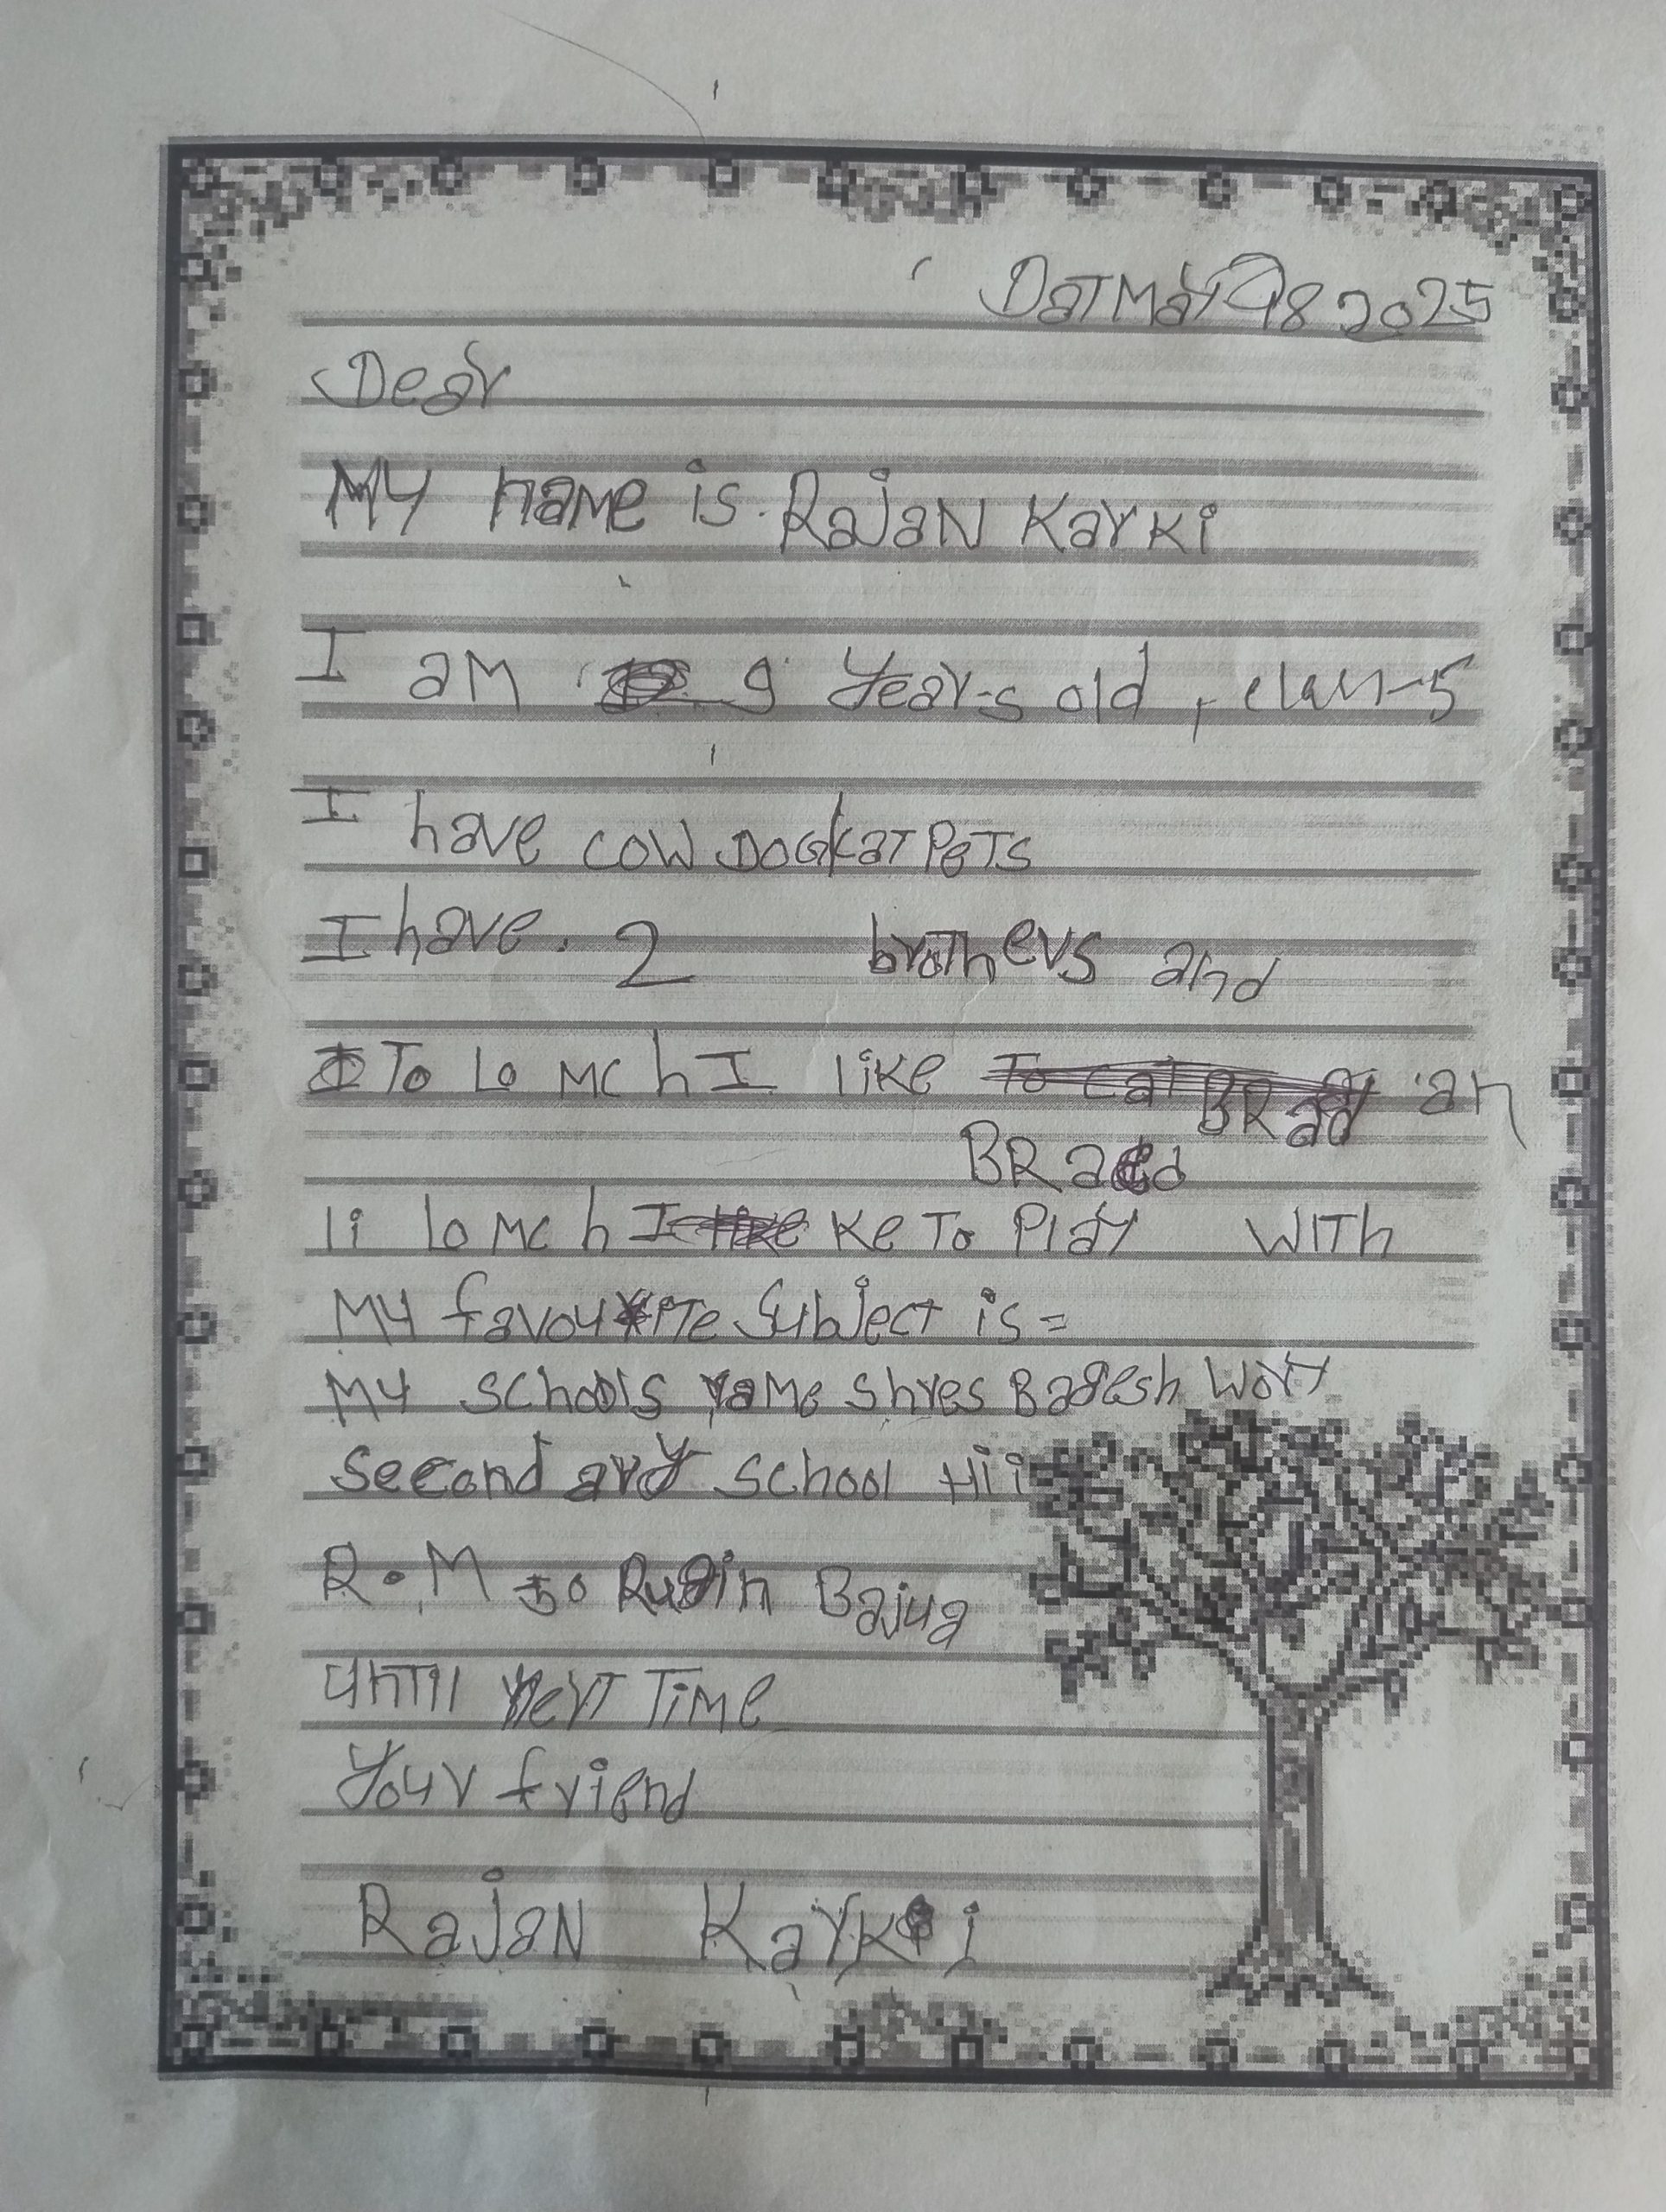 Dat May 18 2025
Dear
My name is Rajan Karki
I am 9 years old, class-5
I have cow DOG/cat Pets
I have. 2 brothers and
To Lo mc h I like an
BRaed
li lo mc h I ke To Play with
My favourite Subject is =
My schools name Shres Bagesh Wory
Second ary school Hii
R.M 50 Bajua
until next Time
Your friend
Rajan Karki